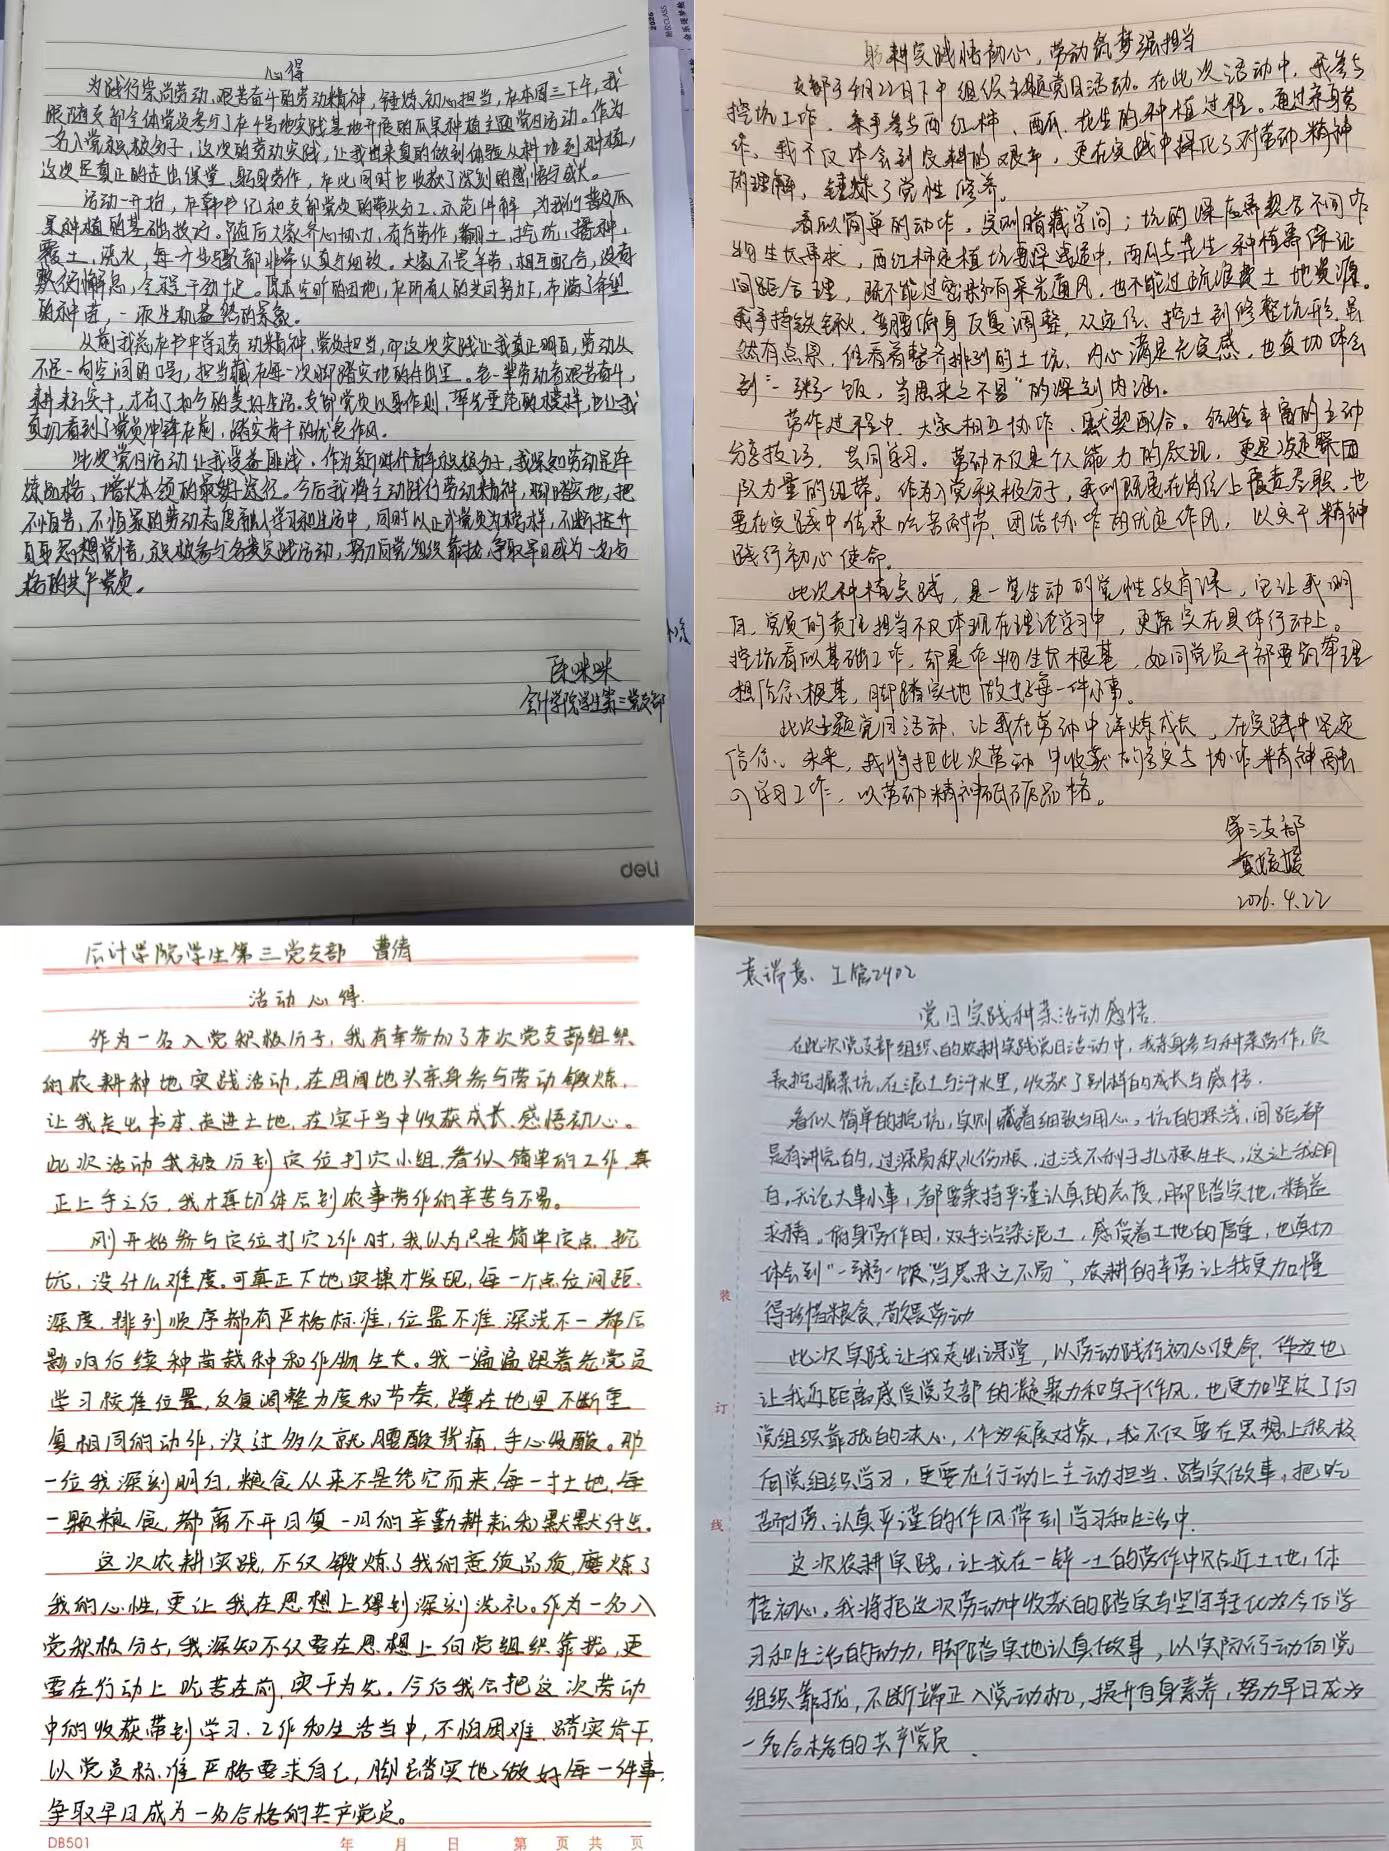 心得
为践行崇尚劳动、艰苦奋斗的劳动精神，锤炼初心担当，在本周三下午，我
跟随支部全体党员参与了在4号地实践基地开展的瓜果种植主题党日活动。作为
一名入党积极分子，这次的劳动实践，让我
这次是真正的走出课堂、躬身劳作，在此同时也收获了深刻的感悟与成长。
活动一开始，在韩书记和支部党员的带头分工、示范
果种植的基础技巧。随后大家齐心协力，有序劳作，翻土、挖坑、播种、
覆土、浇水，每一个步骤都非常认真与细致。大家不畏辛劳，相互配合，没有
敷衍懈怠，全程干劲十足。原本空旷的田地，在所有人的共同努力下，布满了希望
的种苗，一派生机盎然的景象。
从前我总在书中学习劳动精神、党员担当，而这次实践让我真正明白，劳动从
不是一句空洞的口号，担当藏在每一次脚踏实地的付出里。老一辈劳动者艰苦奋斗，
耕耘实干，才有了如今的美好生活。支部党员以身作则，率先垂范的模样，也让我
真切看到了党员冲锋在前，踏实肯干的优良作风。
此次党日活动让我受益匪浅，作为新时代青年积极分子，我深知劳动是锤
炼品格、增长本领的最好途径。今后我将主动践行劳动精神，脚踏实地，把
不怕苦、不怕累的劳动态度融入学习和生活中，同时以正式党员为榜样，不断提升
自身思想觉悟，积极参与各类实践活动，努力向党组织靠拢，争取早日成为一名合
格的共产党员。
咪咪
会计学院学生第三党支部
deli
躬耕实践悟初心，劳动筑梦强担当
支部于4月22日下午组织主题党日活动。在此次活动中，我参与
挖坑工作，亲手参与西红柿、西瓜、花生的种植过程。通过亲身劳
作，我不仅体会到农耕的艰辛，更在实践中深化了对劳动精神
的理解，锤炼了党性修养。
看似简单的动作，实则暗藏学问；坑的深度需契合不同作
物生长需求，西红柿定植坑要深浅适中，西瓜与花生种植需保证
间距合理，既不能过密影响采光通风，也不能过疏浪费土地资源。
我手持铁锹，弯腰俯身反复调整，从定位、挖土到修整坑形，虽
然有点累，但看着整齐排列的土坑，内心满是充实感，也真切体会
到“一粥一饭，当思来之不易”的深刻内涵。
劳作过程中，大家相互协作、默契配合。经验丰富的主动
分享技巧，共同学习。劳动不仅是个人能力的展现，更是凝聚团
队力量的纽带。作为入党积极分子，我们既要在岗位上履责尽职，也
要在实践中传承吃苦耐劳、团结协作的优良作风，以实干精神
践行初心使命。
此次种植实践，是一堂生动的党性教育课，它让我明
白，党员的责任担当不仅体现在理论学习中，更落实在具体行动上。
挖坑看似基础工作，却是作物生长根基，如同党员干部要筑牢理
想信念根基，脚踏实地做好每一件小事。
此次主题党日活动，让我在劳动中淬炼成长，在实践中坚定
信念。未来，我将把此次劳动中收获的务实与协作精神融
入学习工作，以劳动精神砥砺品格。
第三支部
黄媛媛
2026.4.22
会计学院学生第三党支部 曹倩
活动心得
作为一名入党积极分子，我有幸参加了本次党支部组织
的农耕种地实践活动，在田间地头亲身参与劳动锻炼，
让我走出书本、走进土地，在实干当中收获成长、感悟初心。
此次活动我被分到定位打穴小组，看似简单的工作，真
正上手之后，我才真切体会到农事劳作的辛苦与不易。
刚开始参与定位打穴工作时，我以为只是简单定点、挖
坑，没什么难度。可真正下地实操才发现，每一个点位间距、
深度、排列顺序都有严格标准，位置不准、深浅不一都会
影响后续种苗栽种和作物生长。我一遍遍跟着老党员
学习校准位置，反复调整力度和节奏，蹲在地里不断重
复相同的动作，没过多久就腰酸背痛，手心发酸。那
一位我深刻明白，粮食从来不是凭空而来，每一寸土地、每
一颗粮食，都离不开日复一日的辛勤耕耘和默默付出。
这次农耕实践，不仅锻炼了我的意质品质，磨炼了
我的心性，更让我在思想上得到深刻洗礼。作为一名入
党积极分子，我深知不仅要在思想上向党组织靠拢，更
要在行动上吃苦在前、实干为先。今后我会把这次劳动
中的收获带到学习、工作和生活当中，不怕困难、踏实肯干，
以党员标准严格要求自己，脚踏实地做好每一件事，
争取早日成为一名合格的共产党员。
DB501 年 月 日 第 页 共 页
袁瑞意 工管2402
党日实践种菜活动感悟
在此次党支部组织的农耕实践党日活动中，我亲身参与种菜劳作，负
责挖掘菜坑，在泥土与汗水里，收获了别样的成长与感悟。
看似简单的挖坑，实则藏着细致与用心，坑的深浅、间距都
是有讲究的，过深易积水伤根，过浅不利于扎根生长，这让我明
白，无论大事小事，都要秉持严谨认真的态度，脚踏实地，精益
求精。俯身劳作时，双手沾染泥土，感受着土地的厚重，也真切
体会到“一粥一饭当思来之不易”，农耕的辛劳让我更加懂
得珍惜粮食，尊崇劳动
此次实践让我走出课堂，以劳动践行初心使命，作为也
让我近距离感受党支部的凝聚力和实干作风，也更加坚定了向
党组织靠拢的决心，作为发展对象，我不仅要在思想上积极
向党组织学习，更要在行动上主动担当、踏实做事，把吃
苦耐劳、认真严谨的作风带到学习和生活中.
这次农耕实践，让我在一锹一土的劳作中贴近土地，体
悟初心。我将把这次劳动中收获的踏实与坚守转化为今后学
习和生活的动力，脚踏实地认真做事，以实际行动向党
组织靠拢，不断端正入党动机，提升自身素养，努力早日成为
一名合格的共产党员.
装
订
线